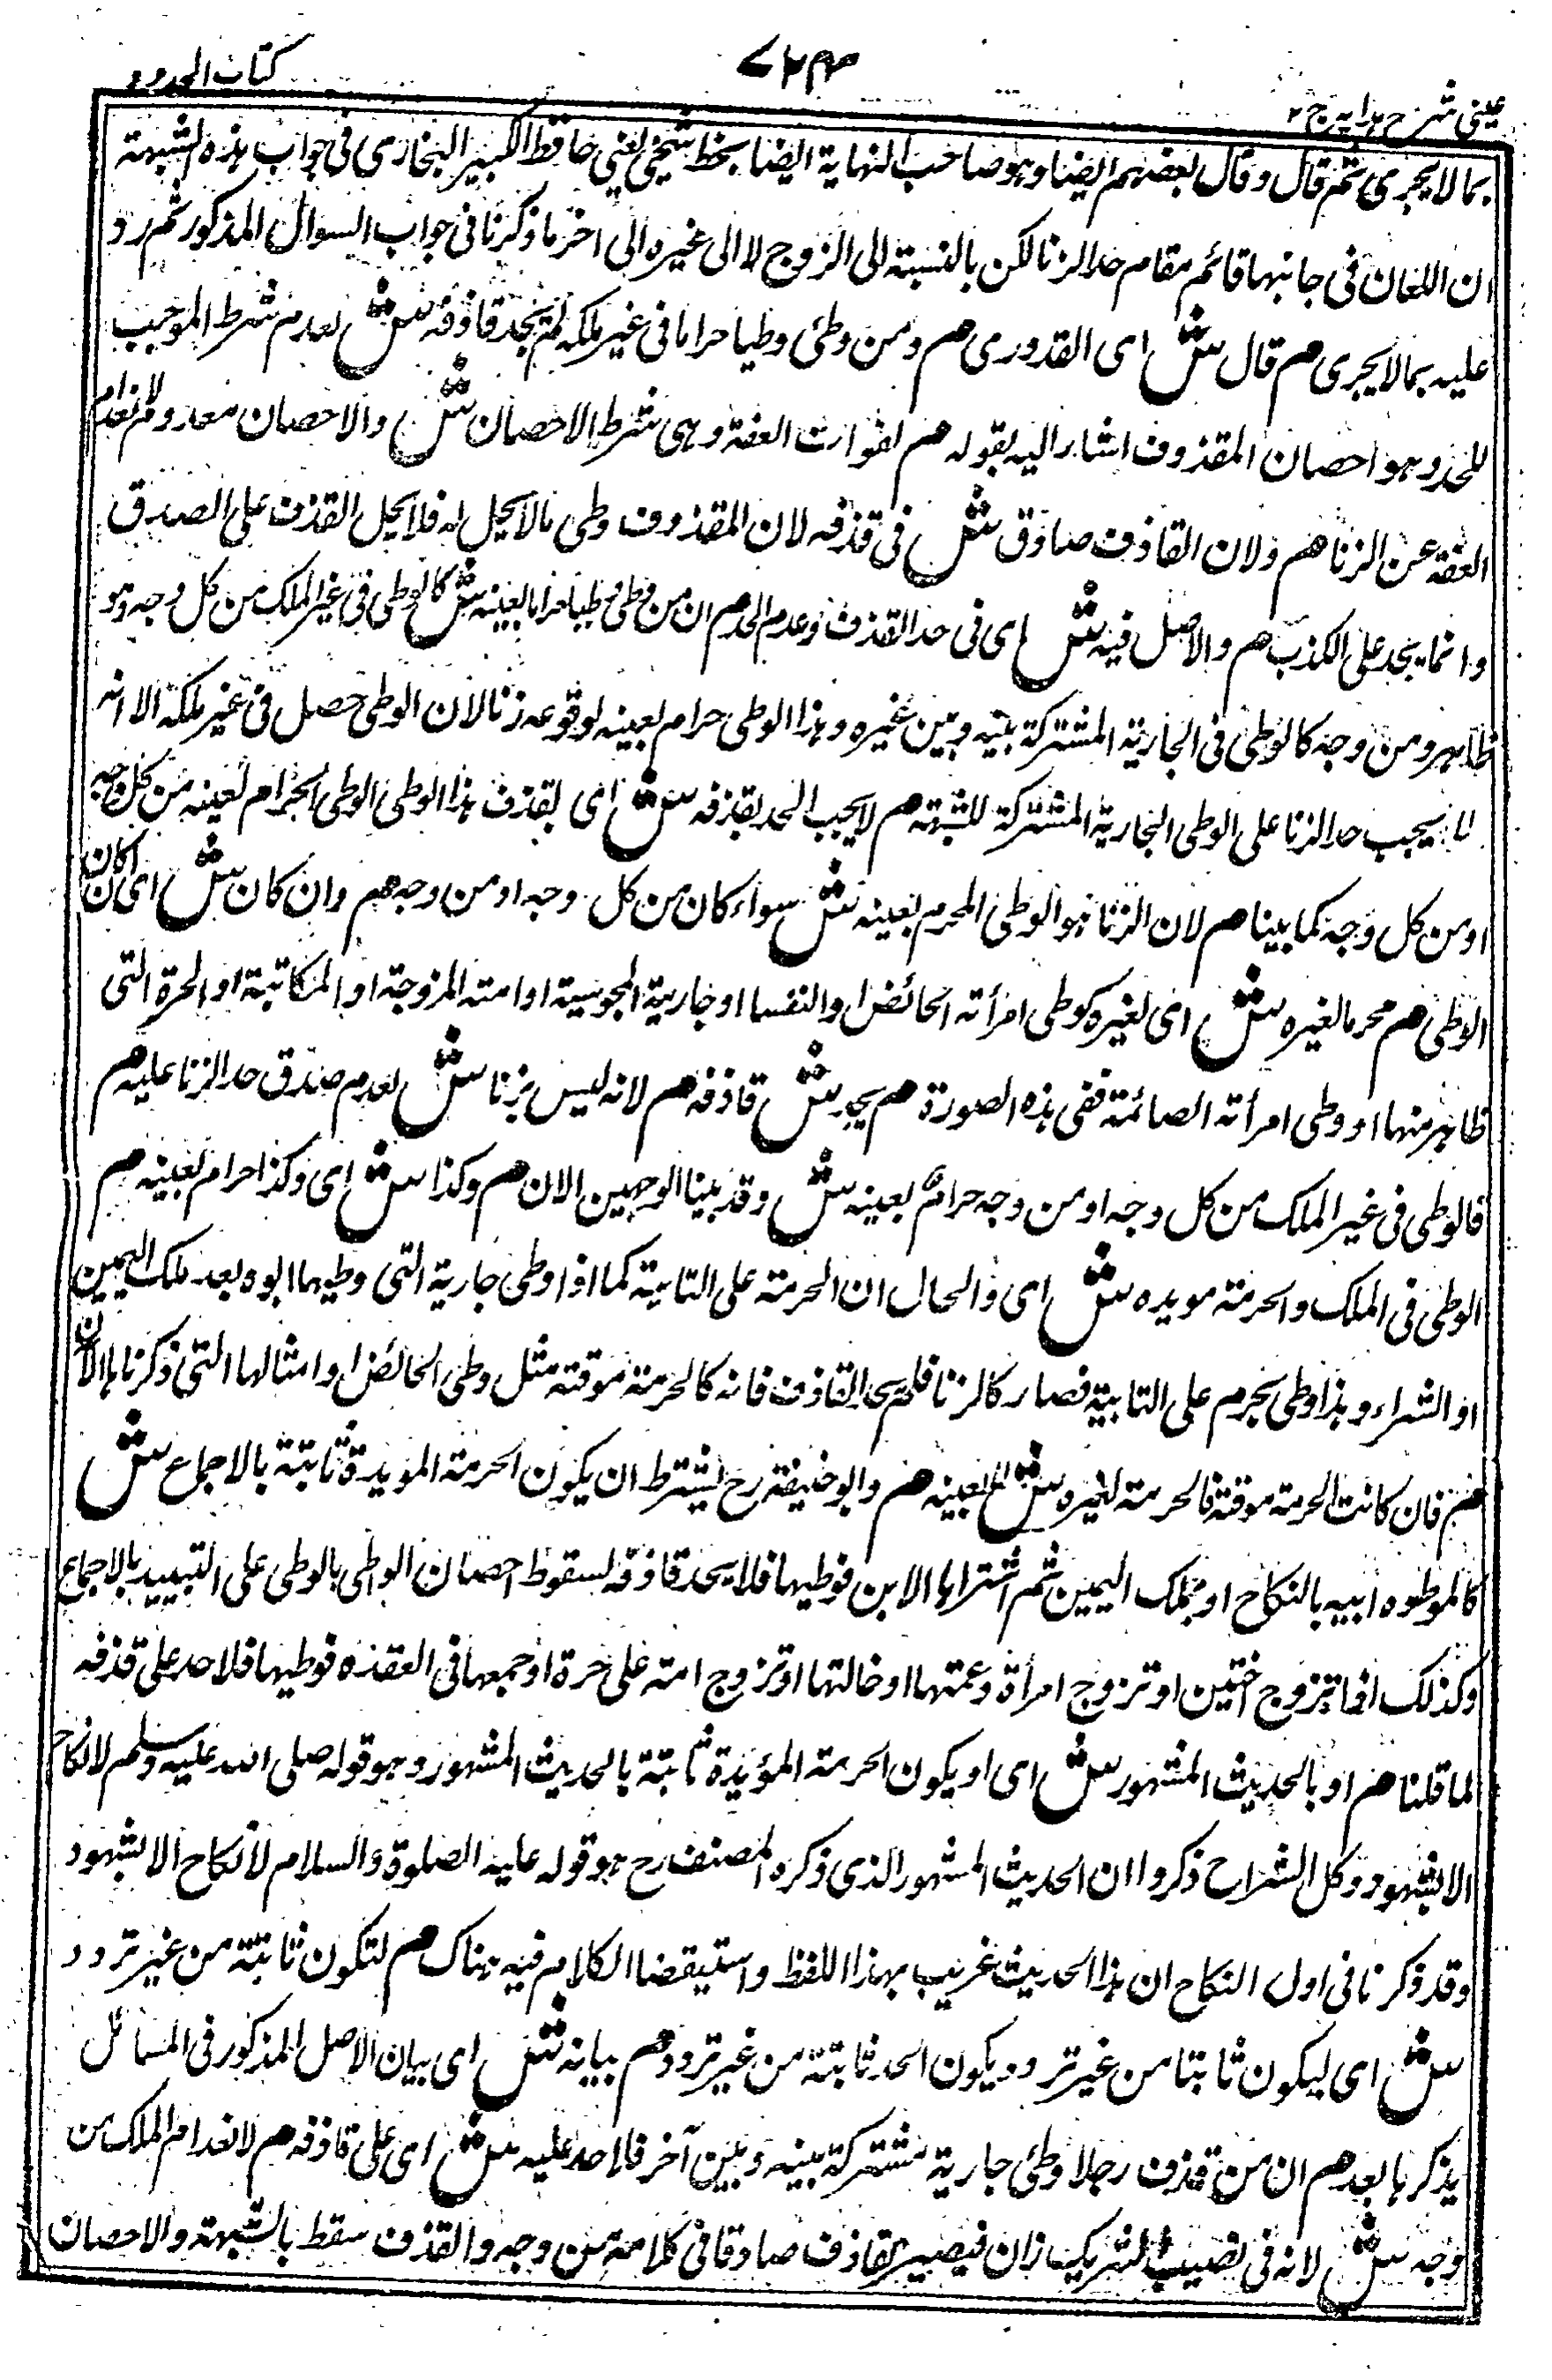 عینی شرح ہدایہ ج ۲
۷۲۳
کتاب الحدود
بما لا یجری ثم قال وقال بعضہم ایضا وہو صاحب النہایۃ ایضا بخط شیخی یعنی حافظ الکبیر البخاری فی جواب ہذہ الشبہۃ
ان اللعان فی جانبہا قائم مقام حد الزنا لکن بالنسبۃ الی الزوج لا الی غیرہ الی اخر ما ذکرنا فی جواب السوال المذکور ثم رد
علیہ بما لا یجری م قال ش ای القدوری م ومن وطئ وطیا حراما فی غیر ملکہ لم یحد قاذفہ ش لعدم شرط الموجب
للحد وہو احصان المقذوف اشار الیہ بقولہ م لفوات العفۃ وہی شرط الاحصان ش والاحصان معدوم لانعدام
العفۃ عن الزنا م ولان القاذف صادق ش فی قذفہ لان المقذوف وطی ما لا یحل لہ فلا یحل القذف علی الصدق
وانما یحد علی الکذب م والاصل فیہ ش ای فی حد القذف وعدم الحد م ان من وطی وطیا حراما لعینہ ش کالوطی فی غیر الملک من کل وجہ وہو
ظاہر ومن وجہ کالوطی فی الجاریۃ المشترکۃ بینہ وبین غیرہ وہذا الوطی حرام لعینہ لوقوعہ زنا لان الوطی حصل فی غیر ملکہ الا انہ
لا یجب حد الزنا علی الوطی الجاریۃ المشترکۃ للشبہۃ م لا یجب الحد بقذفہ ش ای بقذف ہذا الوطی الوطی الحرام لعینہ من کل وجہ
او من کل وجہ کما بینا م لان الزنا ہو الوطی المحرم لعینہ ش سواء کان من کل وجہ او من وجہ م وان کان ش ای ان کان
الوطی م محرما لغیرہ ش ای لغیرہ کوطی امرأتہ الحائض والنفسا او جاریۃ المجوسیۃ او امتہ المزوجۃ او المکاتبۃ او الحرۃ التی
ظاہر منہا او وطی امرأتہ الصائمۃ ففی ہذہ الصورۃ م یحد ش قاذفہ م لانہ لیس بزنا ش لعدم صدق حد الزنا علیہ م
فالوطی فی غیر الملک من کل وجہ او من وجہ حرام لعینہ ش وقد بینا الوجہین الان م وکذا ش ای وکذا حرام لعینہ م
الوطی فی الملک والحرمۃ موبدہ ش ای والحال ان الحرمۃ علی التابیۃ کما اذا وطی جاریۃ التی وطیہا ابوہ بعد ملک الیمین
او الشراء وہذا وطی یحرم علی التابیۃ فصار کالزنا فلم یحد القاذف فانہ کالحرمۃ موقتہ مثل وطی الحائض وامثالہا التی ذکرناہا الان
م فان کانت الحرمۃ موقتۃ فالحرمۃ لغیرہ ش لا لعینہ م وابو حنیفۃ رح یشترط ان یکون الحرمۃ الموبدۃ ثابتۃ بالاجماع ش
کالموطوہ ابیہ بالنکاح او بملک الیمین ثم اشتراہا الابن فوطیہا فلا یحد قاذفہ لسقوط احصان الواطی بالوطی علی التبیید بالاجماع
وکذلک اذا تزوج اختین او تزوج امرأۃ وعمتہا او خالتہا او تزوج امتہ علی حرۃ او جمعہا فی العقدہ فوطیہا فلا حد علی قذفہ
لما قلنا م او بالحدیث المشہور ش ای او یکون الحرمۃ المؤبدۃ ثابتۃ بالحدیث المشہور وہو قولہ صلی اللہ علیہ وسلم لا نکاح
الا بشہود وکل الشراح ذکروا ان الحدیث المشہور الذی ذکرہ المصنف رح ہو قولہ علیہ الصلوۃ والسلام لا نکاح الا بشہود
وقد ذکرنا فی اول النکاح ان ہذا الحدیث غریب بہذا اللفظ واستیقضا الکلام فیہ ہناک م لتکون ثابتۃ من غیر تردد
ش ای لیکون ثابتا من غیر تردد ویکون الحد ثابتۃ من غیر تردد م بیانہ ش ای بیان الاصل المذکور فی المسائل
یذکرہا بعد م ان من قذف رجلا وطئ جاریۃ مشترکۃ بینہ وبین آخر فلا حد علیہ ش ای علی قاذفہ م لانعدام الملک من
وجہ ش لانہ فی نصیب الشریک زان فیصیر القاذف صادقا فی کلامہ من وجہ والقذف سقط بالشبہۃ والاحصان